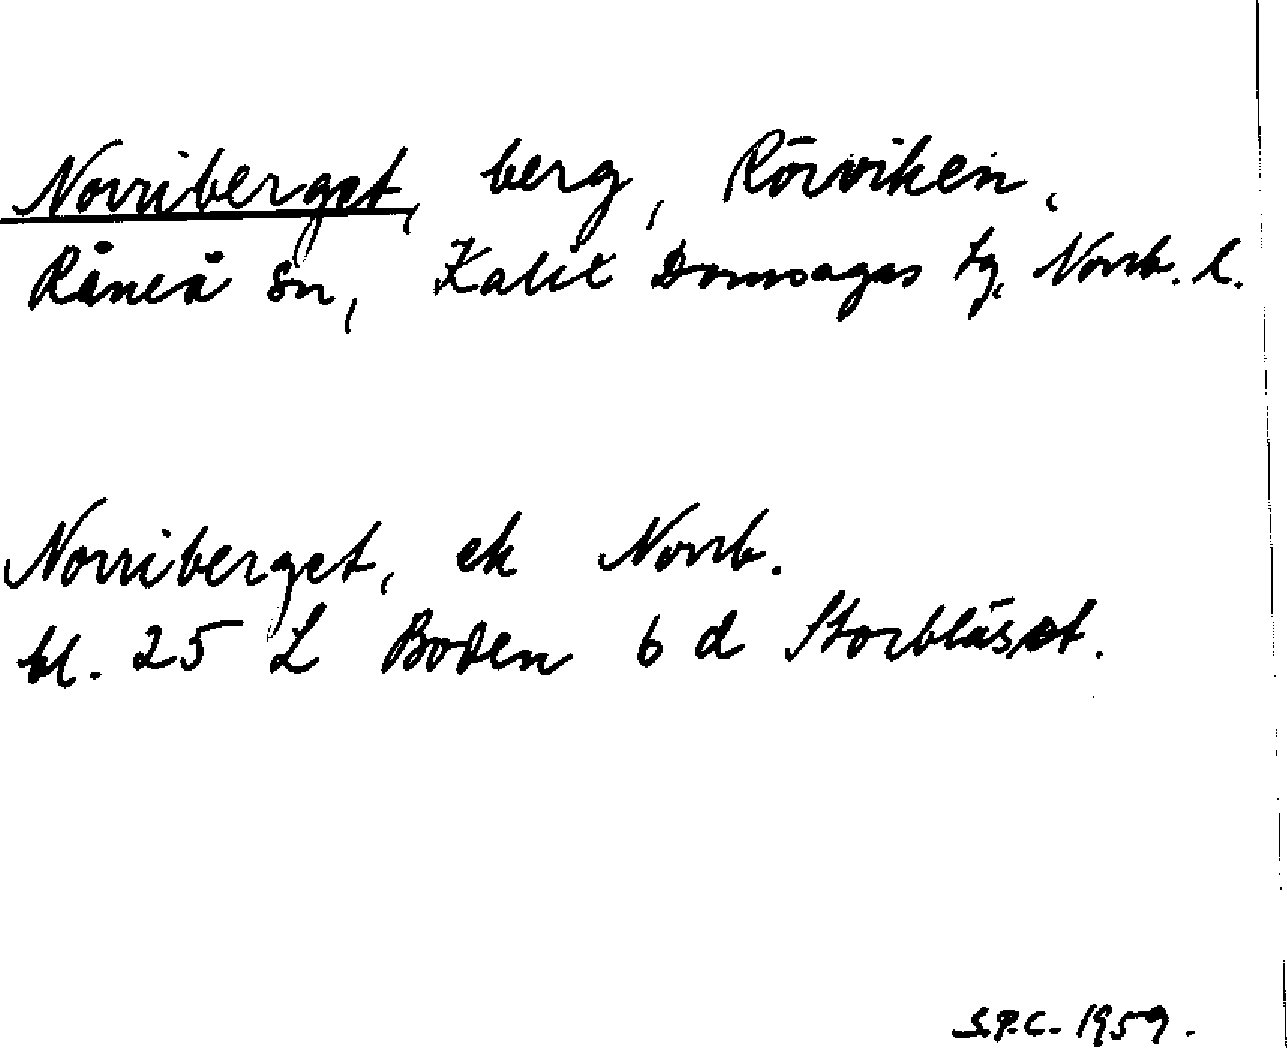 Norriberget, berg, Rörviken,
Råneå sn, Kalix Domsagas tg, Norrb. l.
Norriberget, ek Norrb.
bl. 25 L Boden 6 d Storbläset.
S.P.C. 1959.